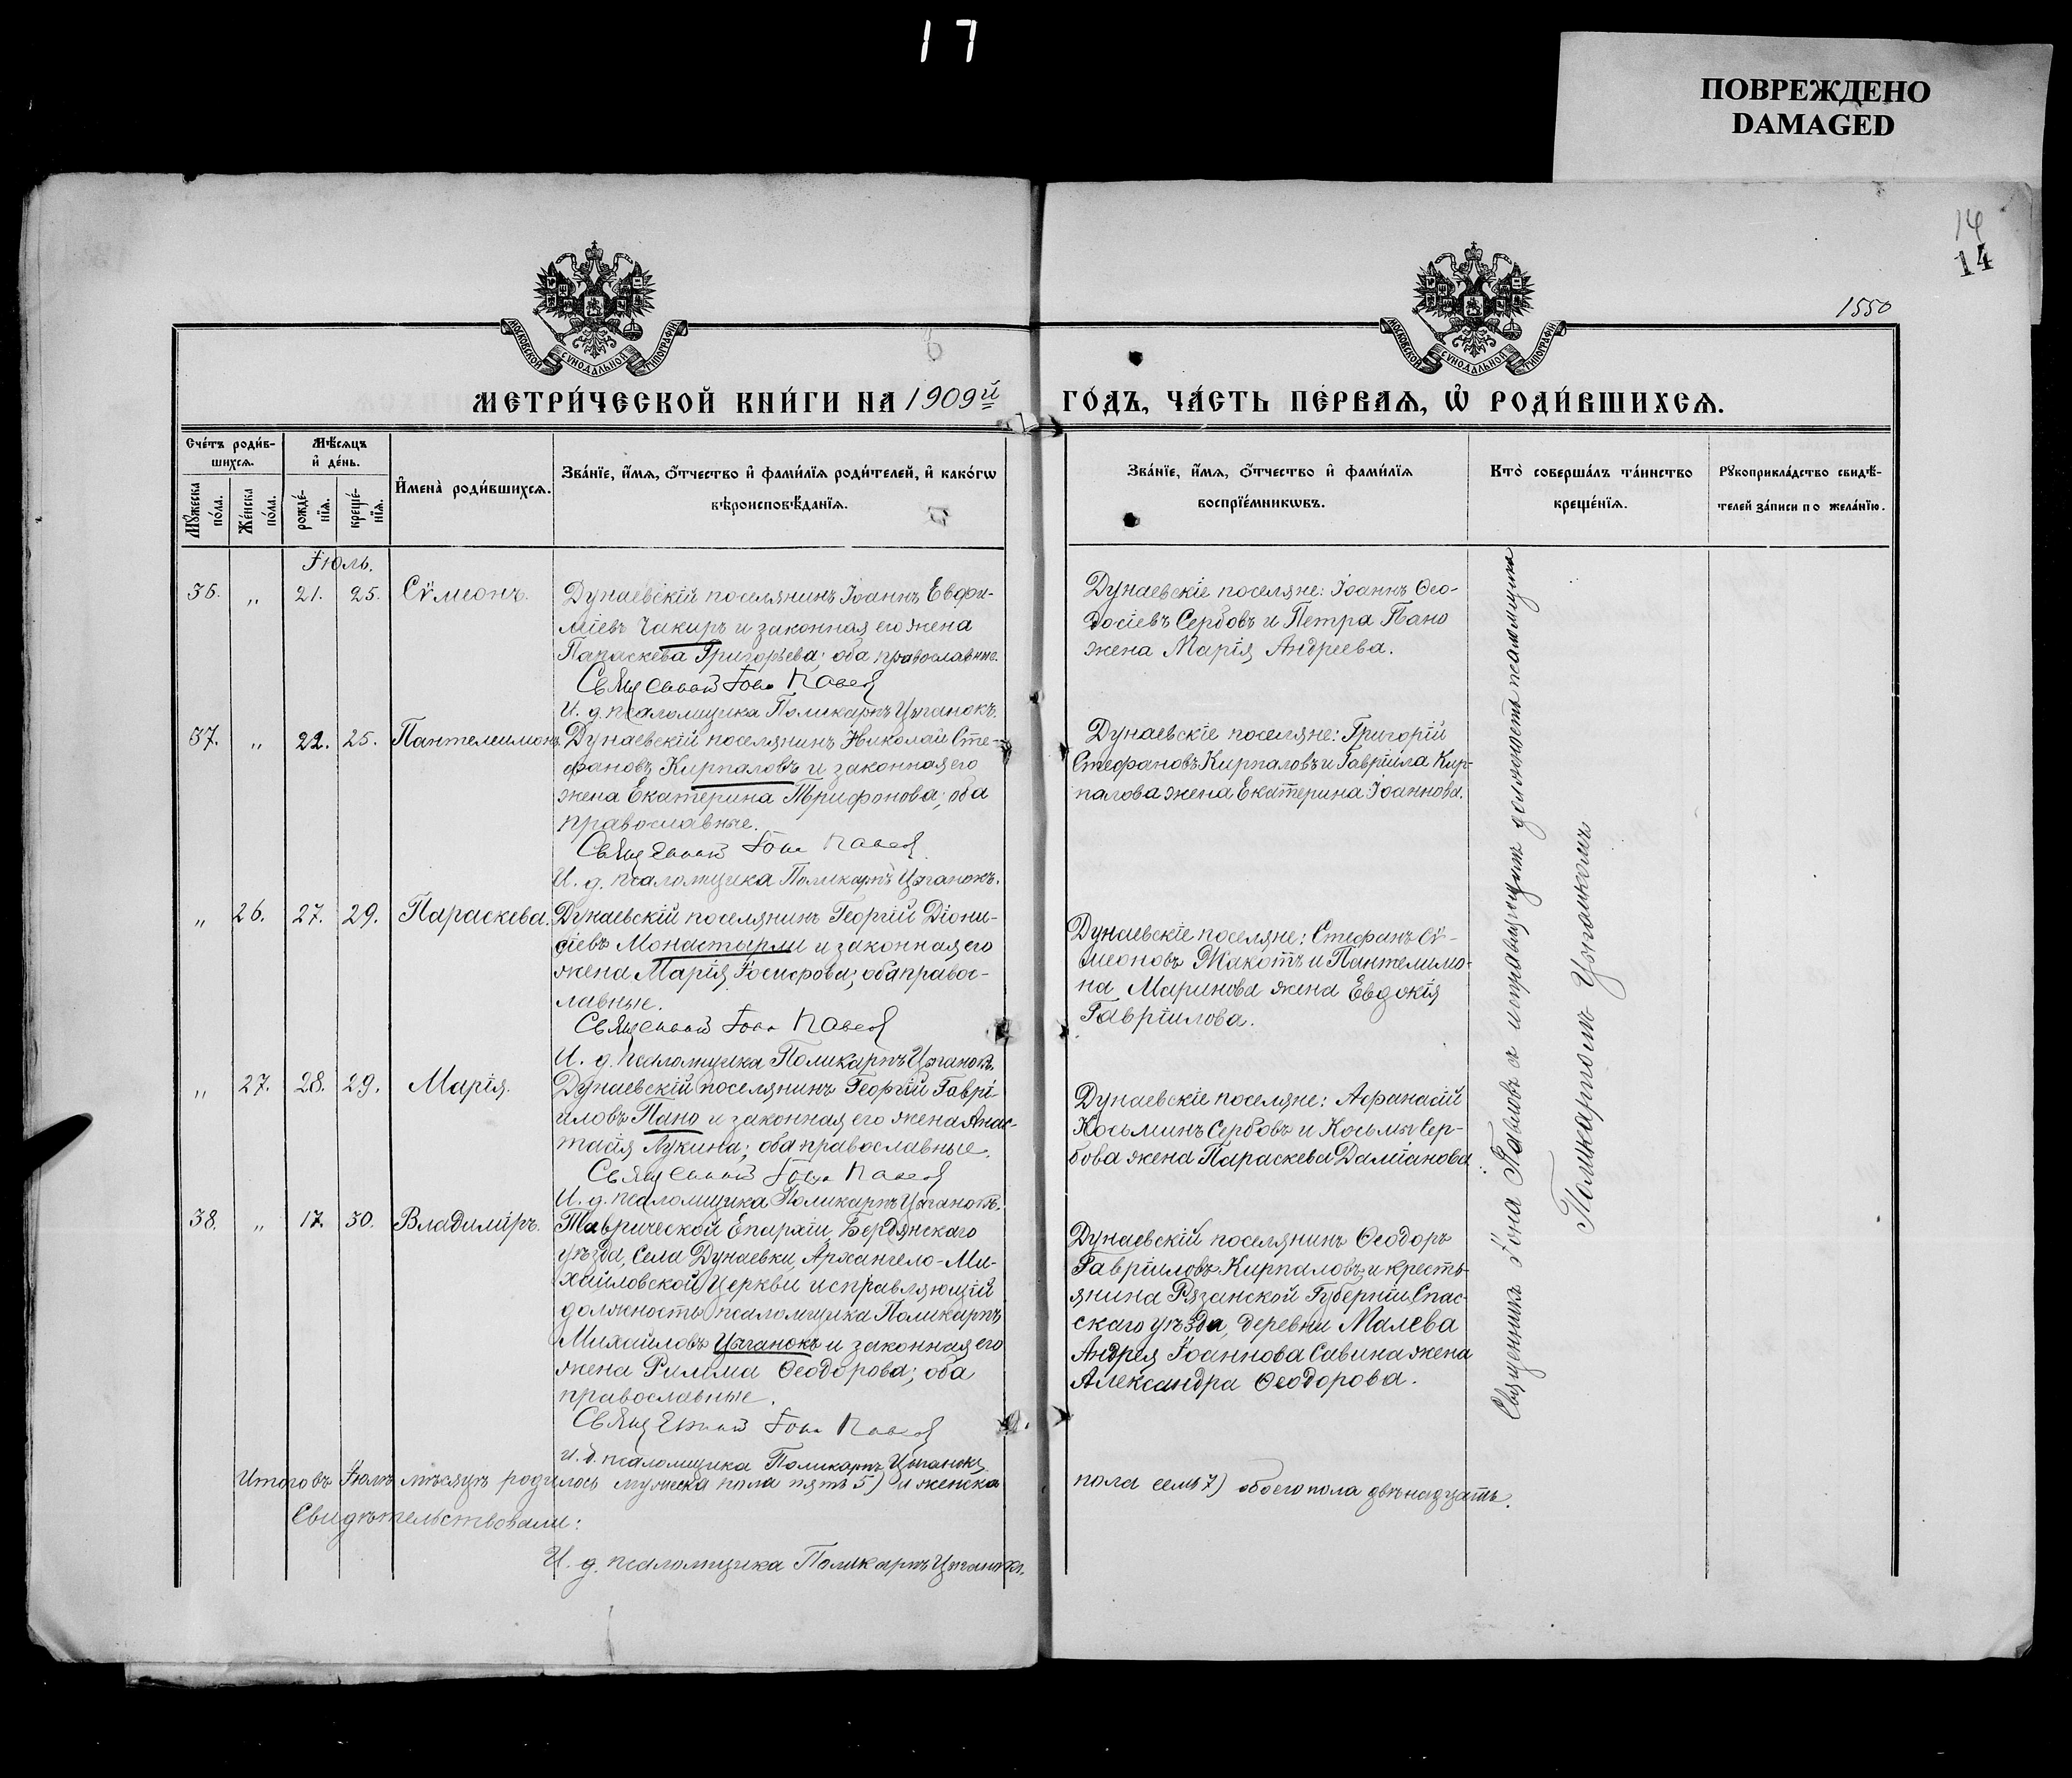 17
ПОВРЕЖДЕНО
DAMAGED
14
14
1550
МОСКОВСКОЙ СѴНОДАЛЬНОЙ ТИПОГРАФІИ
МОСКОВСКОЙ СѴНОДАЛЬНОЙ ТИПОГРАФІИ
МЕТРИ́ЧЕСКОЙ КНИ́ГИ НА 1909й
ГО́ДЪ, ЧА́СТЬ ПЕ́РВАѦ, Ѡ҆ РОДИ́ВШИХСѦ.
Счéтъ роди́в-
шихсѧ.
Мѣ́сѧцъ
и҆ де́нь.
Мꙋ́жеска
по́ла.
Же́нска
по́ла.
рожде́-
нїѧ.
креще́-
нїѧ.
И҆мена̀ роди́вшихсѧ.
Зва́нїе, и҆́мѧ, ѻ҆́тчество и҆ фами́лїѧ роди́телей, и҆ како́гѡ
вѣроисповѣ́данїѧ.
Зва́нїе, и҆́мѧ, ѻ҆́тчество и҆ фами́лїѧ
воспрїе́мникѡвъ.
Кто̀ соверша́лъ та́инство
креще́нїѧ.
Рꙋкоприкла́дство свидѣ́-
телей за́писи по жела́нїю.
Іюль.
36. „ 21. 25. Сѵмеонъ.
Дунаевскій поселянинъ Іоаннъ Евфи-
міевъ Чакиръ и законная его жена
Папаскева Григорьева; оба православные.
Священникъ Іона Павловъ
И. д. псаломщика Поликарпъ Цыганокъ.
Дунаевскіе поселяне: Іоаннъ Ѳео-
досіевъ Сербовъ и Петра Пано
жена Марія Андреева.
37. „ 22. 25. Пантелеимонъ.
Дунаевскій поселянинъ Николай Сте-
фановъ Кирпаловъ и законная его
жена Екатерина Трифонова; оба
православные.
Священникъ Іона Павловъ
И. д. псаломщика Поликарпъ Цыганокъ.
Дунаевскіе поселяне: Григорій
Стефановъ Кирпаловъ и Гавріила Кир-
палова жена Екатерина Іоаннова.
„ 26. 27. 29. Параскева.
Дунаевскій поселянинъ Георгій Діони-
сіевъ Монастырли и законная его
жена Марія Іосифова; оба правос-
лавные.
Священникъ Іона Павловъ
И. д. псаломщика Поликарпъ Цыганокъ.
Дунаевскіе поселяне: Стефанъ Сѵ-
меоновъ Жакотъ и Пантелимо-
на Маринова жена Евдокія
Гавріилова.
„ 27. 28. 29. Марія.
Дунаевскій поселянинъ Георгій Гаврі-
иловъ Пано и законная его жена Анас-
тасія Лукина; оба православные.
Священникъ Іона Павловъ
И. д. псаломщика Поликарпъ Цыганокъ.
Дунаевскіе поселяне: Аѳанасій
Косьминъ Сербовъ и Косьмы Сер-
бова жена Параскева Даміанова.
38. „ 17. 30. Владиміръ.
Таврической Епархіи, Бердянскаго
уѣзда, села Дунаевки, Архангело-Ми-
хайловской Церкви исправляющій
должность псаломщика Поликарпъ
Михайловъ Цыганокъ и законная его
жена Римма Ѳеодорова; оба
православные.
Священникъ Іона Павловъ
И. д. псаломщика Поликарпъ Цыганокъ.
Дунаевскій поселянинъ Ѳеодоръ
Гавріиловъ Кирпаловъ и кресть-
янина Рязанской Губерніи, Спас-
скаго уѣзда, деревни Малева
Андрея Іоаннова Савина жена
Александра Ѳеодорова.
Священникъ Іона Павловъ съ исправляющимъ должность псаломщика
Поликарпомъ Цыганкомъ
Итого въ Іюлѣ мѣсяцѣ родилось мужеска пола пять 5) и женска
пола семь 7) обоего пола двѣнадцать.
Свидѣтельствовали:
И. д. псаломщика Поликарпъ Цыганокъ.